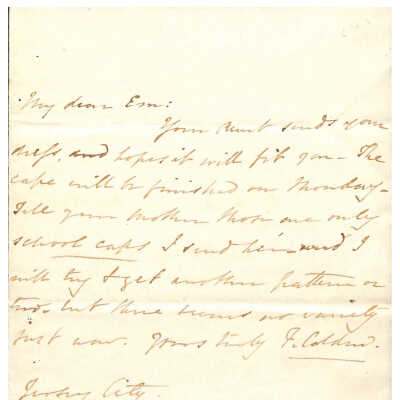 My dear Em:
Your Aunt sends your
dress, and hopes it will fit you - The
cape will be finished on Monday -
Tell your Mother those are only
school caps I send her and I
will try & get another pattern or
two, but there seems no variety
just now. Yours truly F.
Jersey City.